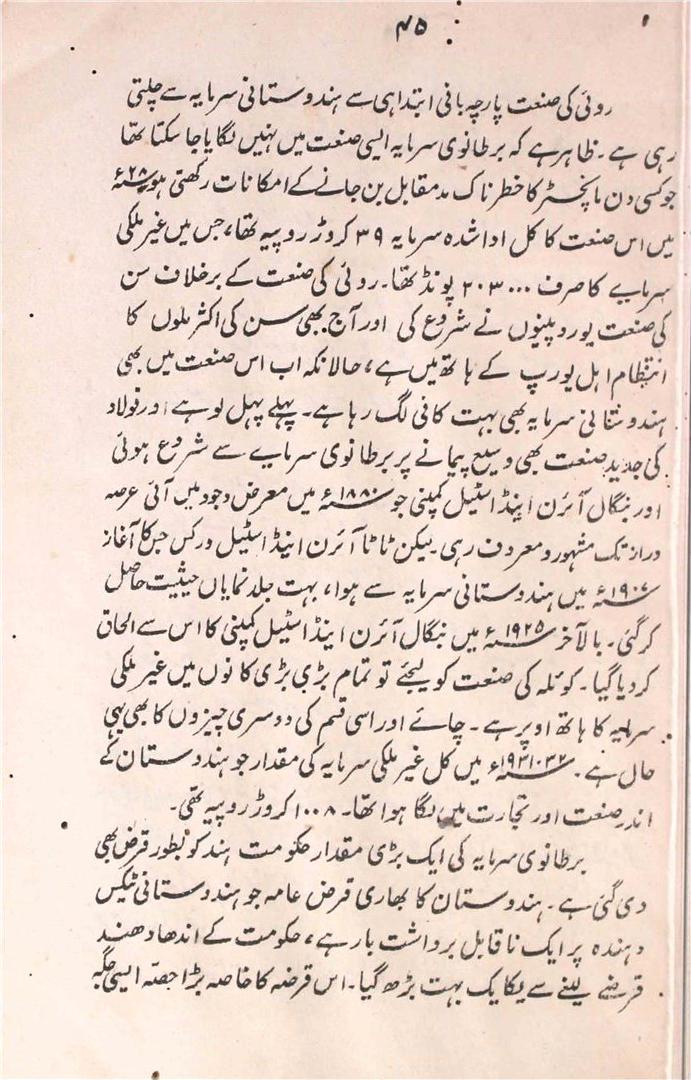 ۴۵
روئی کی صنعت پارچہ بافی ابتدا ہی سے ہندوستانی سرمایہ سے چلتی
رہی ہے۔ ظاہر ہے کہ برطانوی سرمایہ ایسی صنعت میں نہیں لگایا جا سکتا تھا
جو کسی دن مانچسٹر کا خطرناک مد مقابل بن جانے کے امکانات رکھتی ہو۔ ۲۸ء
میں اس صنعت کا کل ادا شدہ سرمایہ ۳۹ کروڑ روپیہ تھا، جس میں غیر ملکی
سرمایے کا صرف ۲۰۳۰۰۰ پونڈ تھا۔ روئی کی صنعت کے برخلاف سن
کی صنعت یوروپینوں نے شروع کی اور آج بھی سن کی اکثر ملوں کا
انتظام اہل یورپ کے ہاتھ میں ہے، حالانکہ اب اس صنعت میں بھی
ہندوستانی سرمایہ بھی بہت کافی لگ رہا ہے۔ پہلے پہل لوہے اور فولاد
کی جدید صنعت بھی وسیع پیمانے پر برطانوی سرمایے سے شروع ہوئی
اور بنگال آئرن اینڈ اسٹیل کمپنی جو ۱۸۸۰ء میں معرض وجود میں آئی عرصہ
دراز تک مشہور و معروف رہی لیکن ٹاٹا آئرن اینڈ اسٹیل ورکس جس کا آغاز
۱۹۰۷ء میں ہندوستانی سرمایہ سے ہوا، بہت جلد نمایاں حیثیت حاصل
کر گئی۔ بالآخر ۱۹۲۵ء میں بنگال آئرن اینڈ اسٹیل کمپنی کا اس سے الحاق
کر دیا گیا۔ کوئلہ کی صنعت کو لیجئے تو تمام بڑی بڑی کانوں میں غیر ملکی
سرمایہ کا ہاتھ اوپر ہے۔ چائے اور اسی قسم کی دوسری چیزوں کا بھی یہی
حال ہے۔ ۳۲-۱۹۳۱ء میں کل غیر ملکی سرمایہ کی مقدار جو ہندوستان کے
اندر صنعت اور تجارت میں لگا ہوا تھا۔ ۱۰۰۸ کروڑ روپیہ تھی۔
برطانوی سرمایہ کی ایک بڑی مقدار حکومت ہند کو بطور قرض بھی
دی گئی ہے۔ ہندوستان کا بھاری قرض عامہ جو ہندوستانی ٹیکس
دہندہ پر ایک ناقابل برداشت بار ہے، حکومت کے اندھا دھند
قرضے لینے سے یکایک بہت بڑھ گیا۔ اس قرضہ کا خاصہ بڑا حصّہ ایسی جگہ